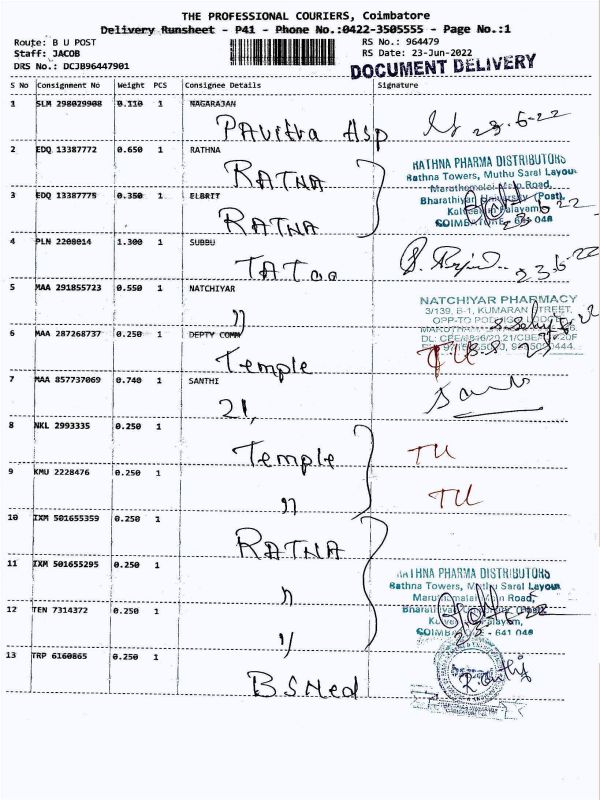 THE PROFESSIONAL COURIERS, Coimbatore
Delivery Runsheet - P41 - Phone No.:0422-3505555 - Page No.:1
Route: B U POST RS No.: 964479
Staff: JACOB RS Date: 23-Jun-2022
DRS No.: DCJB96447901 DOCUMENT DELIVERY
S No Consignment No Weight PCS Consignee Details Signature
1 SLM 298029908 0.110 1 NAGARAJAN
Pavitra Asp 23-6-22
2 EDQ 13387772 0.650 1 RATHNA
RATNA
RATHNA PHARMA DISTRIBUTORS
Rathna Towers, Muthu Saral Layout
Marathamalai Main Road,
3 EDQ 13387775 0.350 1 ELBRIT
RATNA
Bharathiyar University (Post),
COIMBATORE - 641 046
23-6-22
4 PLN 2208014 1.300 1 SUBBU
TATaa 23-6-22
5 MAA 291855723 0.550 1 NATCHIYAR
"
NATCHIYAR PHARMACY
3/139, B-1, KUMARAN STREET,
6 MAA 287268737 0.250 1 DEPTY COMM
Temple TU
7 MAA 857737069 0.740 1 SANTHI
21,
8 NKL 2993335 0.250 1
Temple TU
9 KMU 2228476 0.250 1
" TU
10 IXM 501655359 0.250 1
RATNA
11 IXM 501655295 0.250 1
"
RATHNA PHARMA DISTRIBUTORS
Rathna Towers, Muthu Saral Layout
Maruthamalai Main Road,
12 TEN 7314372 0.250 1
"
COIMBATORE - 641 046
13 TRP 6160865 0.250 1
B.S Med